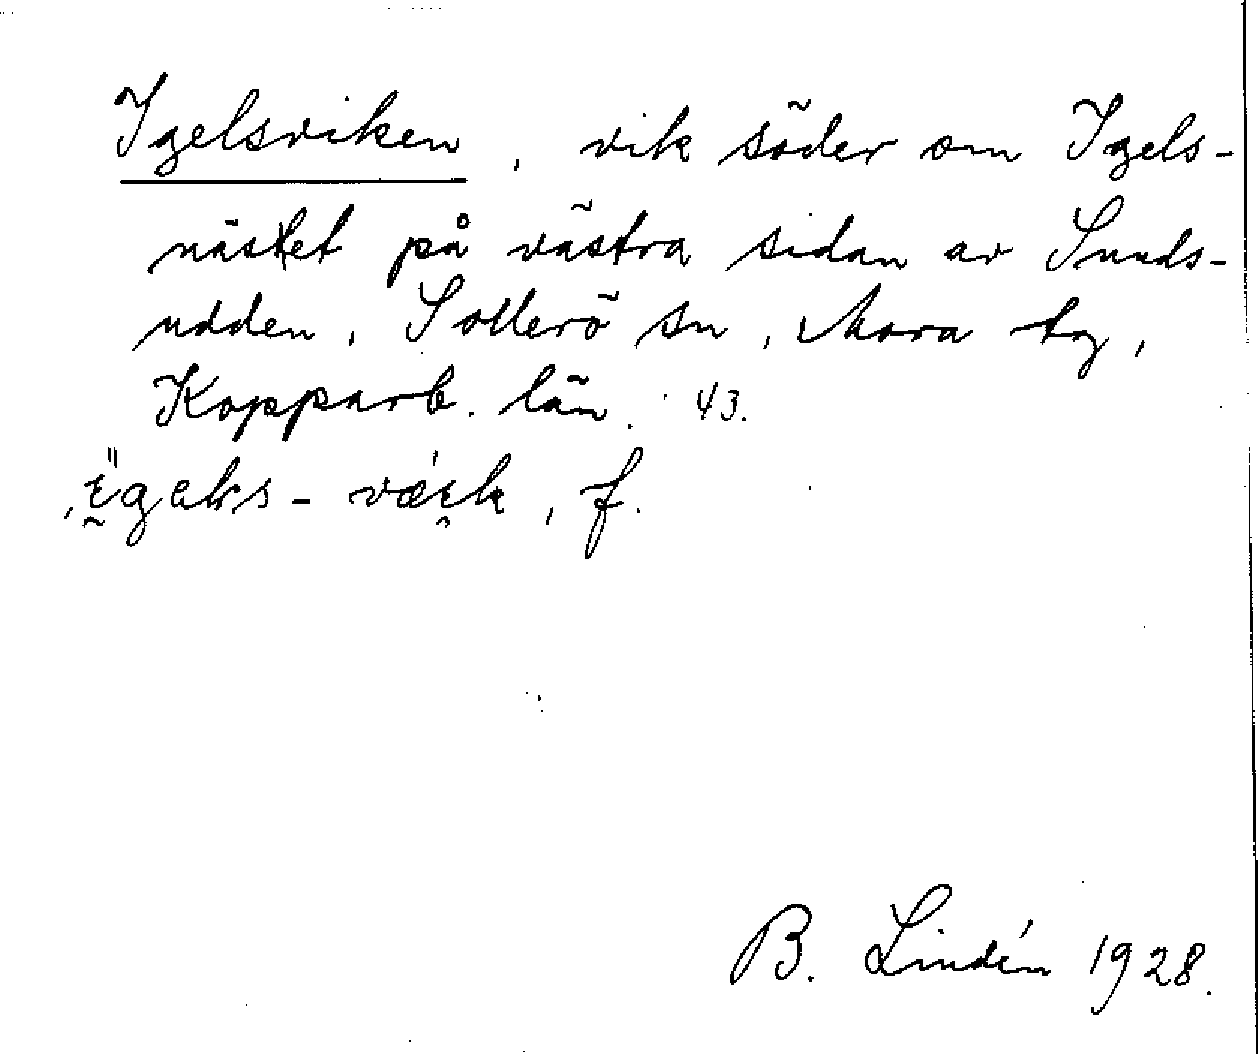 Igelsviken, vik söder om Igels-
nästet på västra sidan av Sunds-
udden, Sollerö sn, Mora tg,
Kopparb. län. 43.
f.
B. Lindén 1928.